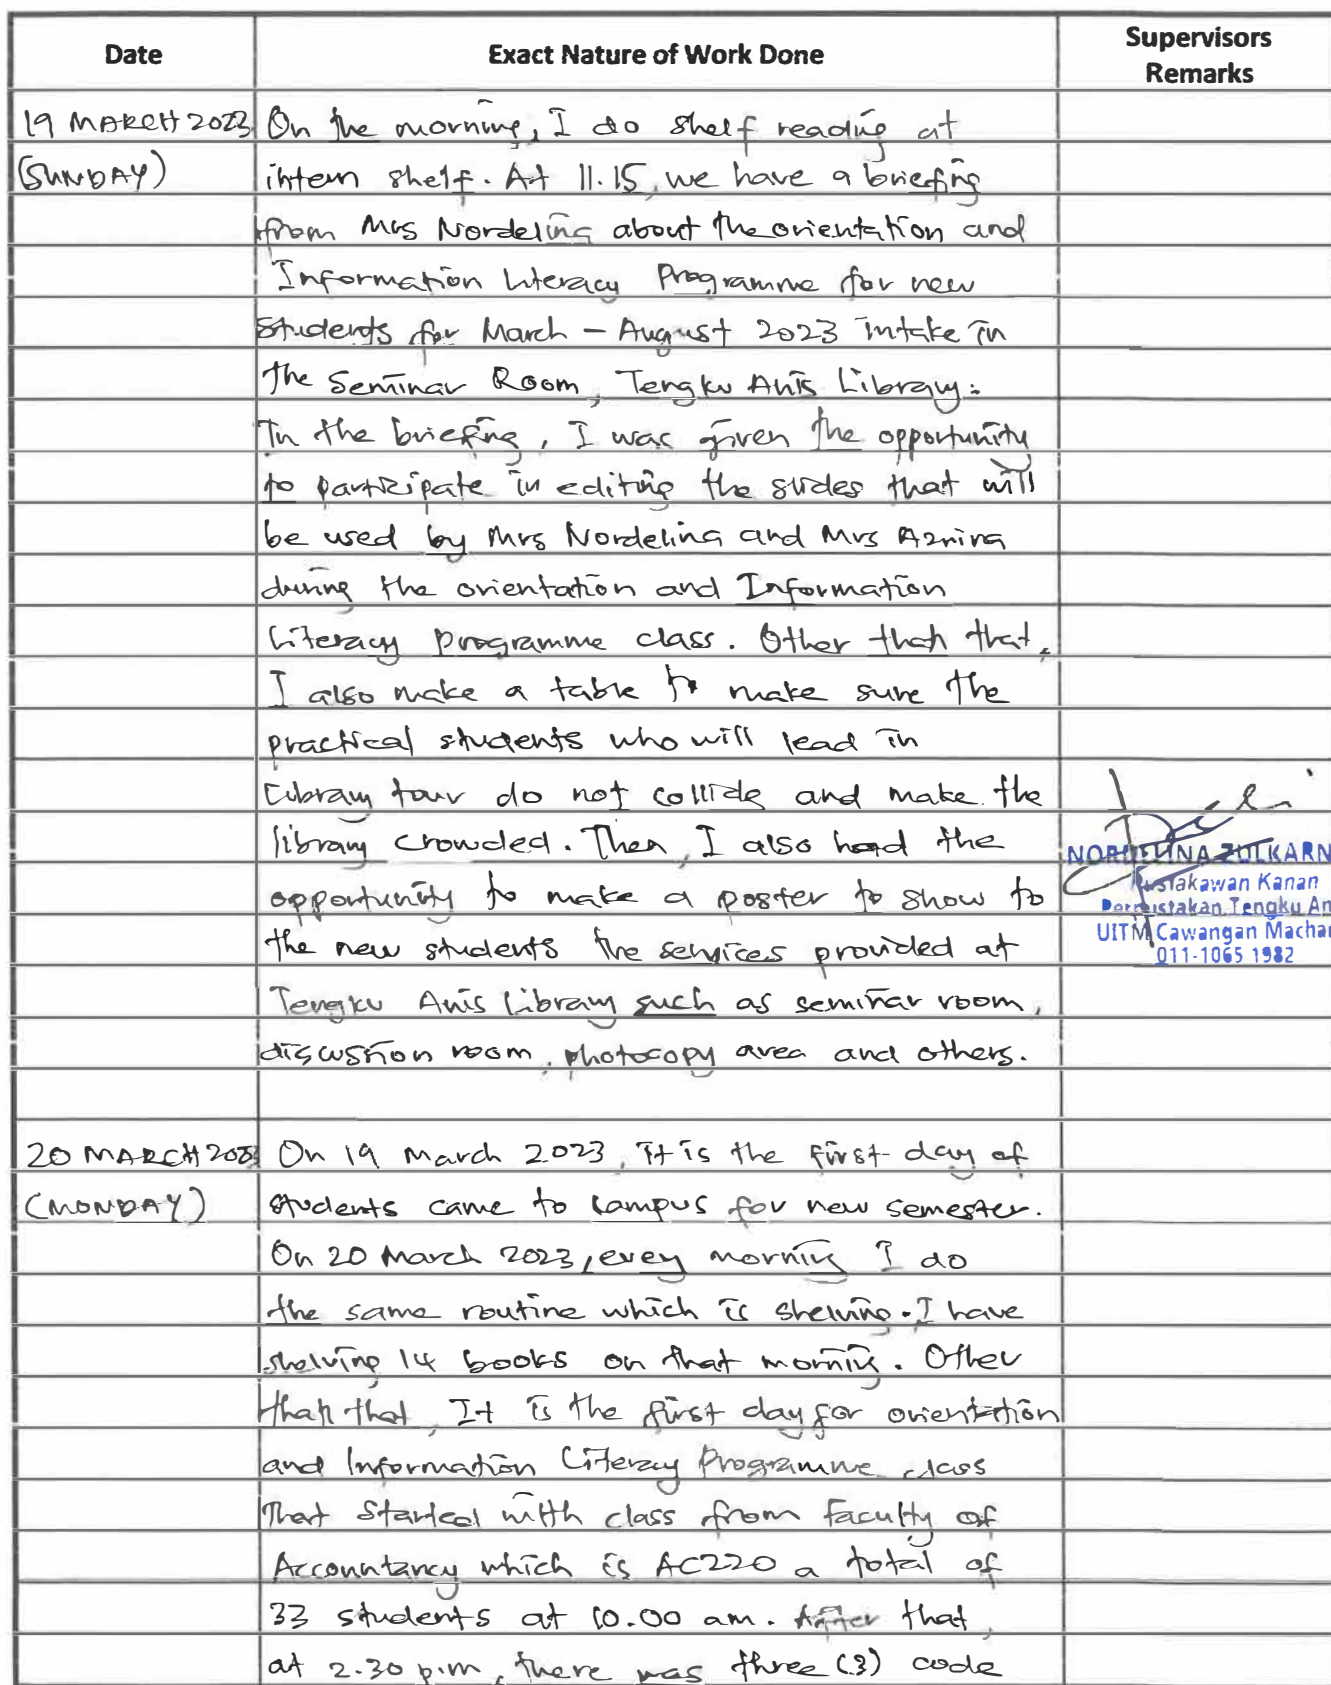 Date Exact Nature of Work Done Supervisors Remarks
19 MARCH 2023 On the morning, I do shelf reading at
(SUNDAY) intern shelf. At 11.15, we have a briefing
from Mrs Nordelina about the orientation and
Information Literacy Programme for new
students for March - August 2023 intake in
the Seminar Room, Tengku Anis Library.
In the briefing, I was given the opportunity
to participate in editing the slides that will
be used by Mrs Nordelina and Mrs Aznina
during the orientation and Information
Literacy programme class. Other than that,
I also make a table to make sure the
practical students who will lead in
Library tour do not collide and make the
library crowded. Then, I also had the
opportunity to make a poster to show to
the new students the services provided at
Tengku Anis Library such as seminar room,
discussion room, photocopy area and others.
NORDELINA ZULKARN
Pustakawan Kanan
Perpustakan Tengku An
UITM Cawangan Machan
011-1065 1982
20 MARCH 2023 On 19 March 2023, it is the first day of
(MONDAY) students came to campus for new semester.
On 20 March 2023, every morning I do
the same routine which is shelving. I have
shelving 14 books on that morning. Other
than that, It is the first day for orientation
and Information Literacy Programme class
That started with class from faculty of
Accountancy which is AC220 a total of
33 students at 10.00 am. After that,
at 2.30 p.m, there was three (3) code